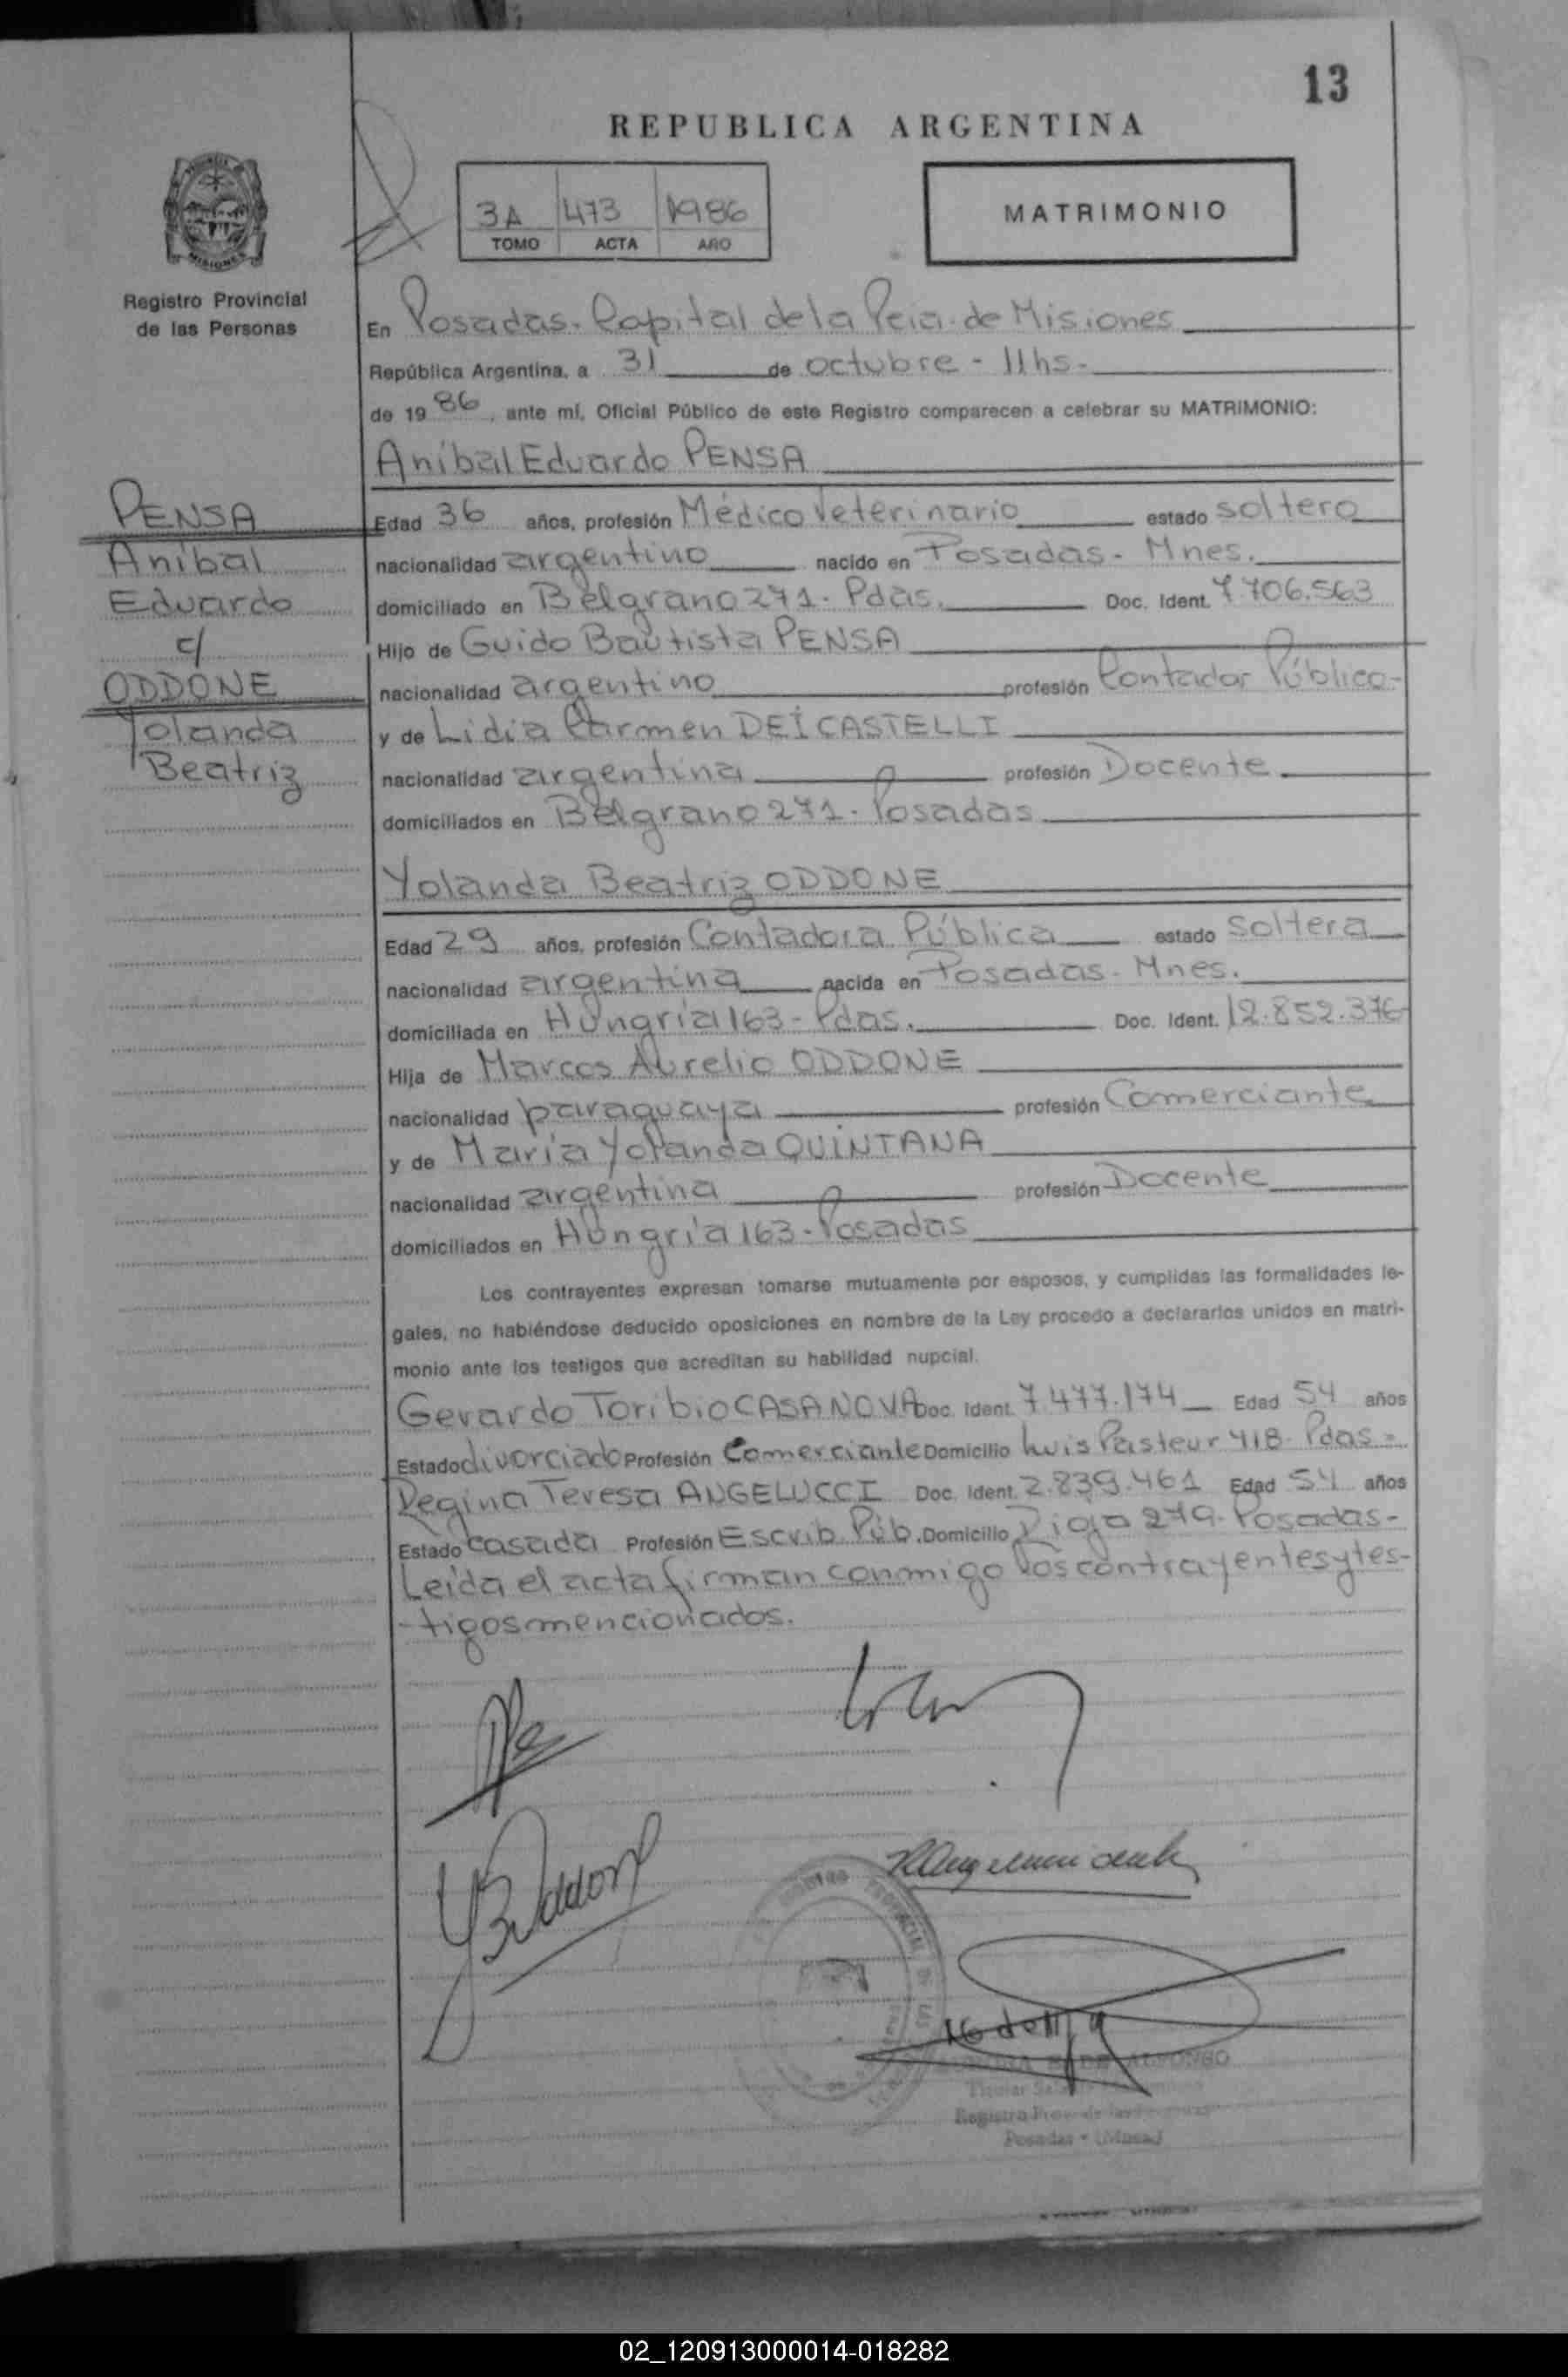 13
REPUBLICA ARGENTINA
3A 473 1986
TOMO ACTA AÑO
MATRIMONIO
MISIONES
Registro Provincial
de las Personas
En Posadas. Capital de la Pcia. de Misiones
República Argentina, a 31 de octubre - 11hs-
de 19 86, ante mí, Oficial Público de este Registro comparecen a celebrar su MATRIMONIO:
Aníbal Eduardo PENSA
PENSA
Aníbal
Eduardo
c/
ODDONE
Yolanda
Beatriz
Edad 36 años, profesión Médico Veterinario estado soltero
nacionalidad argentino nacido en Posadas - Mnes.
domiciliado en Belgrano 271. Pdas. Doc. Ident. 7.706.563
Hijo de Guido Bautista PENSA
nacionalidad argentino profesión Contador Público-
y de Lidia Carmen DEICASTELLI
nacionalidad argentina profesión Docente
domiciliados en Belgrano 271. Posadas
Yolanda Beatriz ODDONE
Edad 29 años, profesión Contadora Pública estado soltera
nacionalidad argentina nacida en Posadas - Mnes.
domiciliada en Hungría 163 - Pdas. Doc. Ident. 12.852.376
Hija de Marcos Aurelio ODDONE
nacionalidad paraguaya profesión Comerciante
y de María Yolanda QUINTANA
nacionalidad argentina profesión Docente
domiciliados en Hungría 163 - Posadas
Los contrayentes expresan tomarse mutuamente por esposos, y cumplidas las formalidades le-
gales, no habiéndose deducido oposiciones en nombre de la Ley procedo a declararlos unidos en matri-
monio ante los testigos que acreditan su habilidad nupcial.
Gerardo Toribio CASANOVA Doc. Ident. 7.477.174 Edad 54 años
Estado divorciado Profesión Comerciante Domicilio Luis Pasteur 418. Pdas-
Regina Teresa ANGELUCCI Doc. Ident. 2.839.461 Edad 54 años
Estado casada Profesión Escrib. Púb. Domicilio Rioja 279. Posadas-
Leída el acta firman conmigo los contrayentes y tes-
-tigos mencionados.
DE ALFONSO
Titular
Registro Prov. de las
Posadas - (Mnes.)
02_120913000014-018282